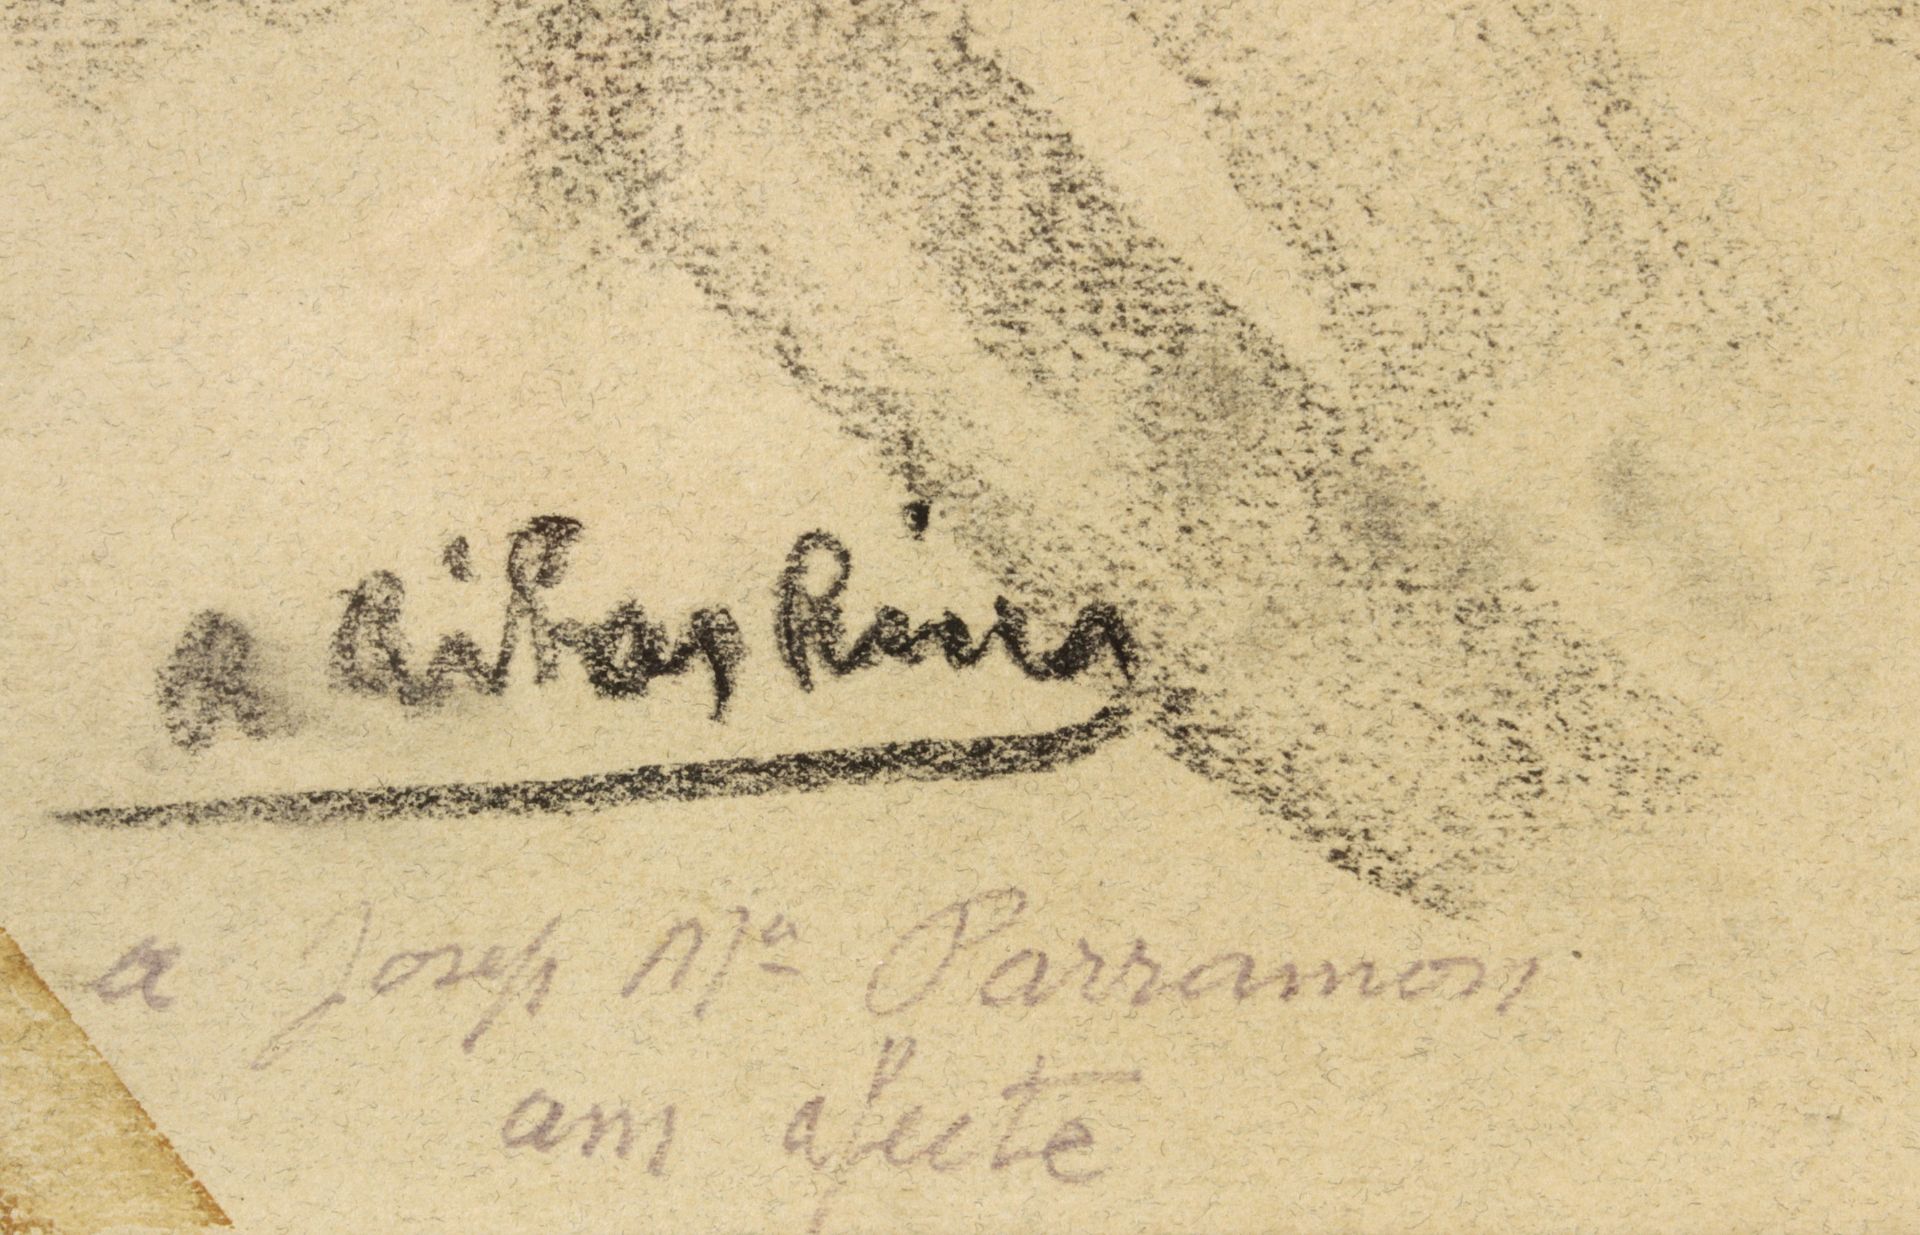 A Ribas Rius
a Josep Mª Parramon.
am afecte